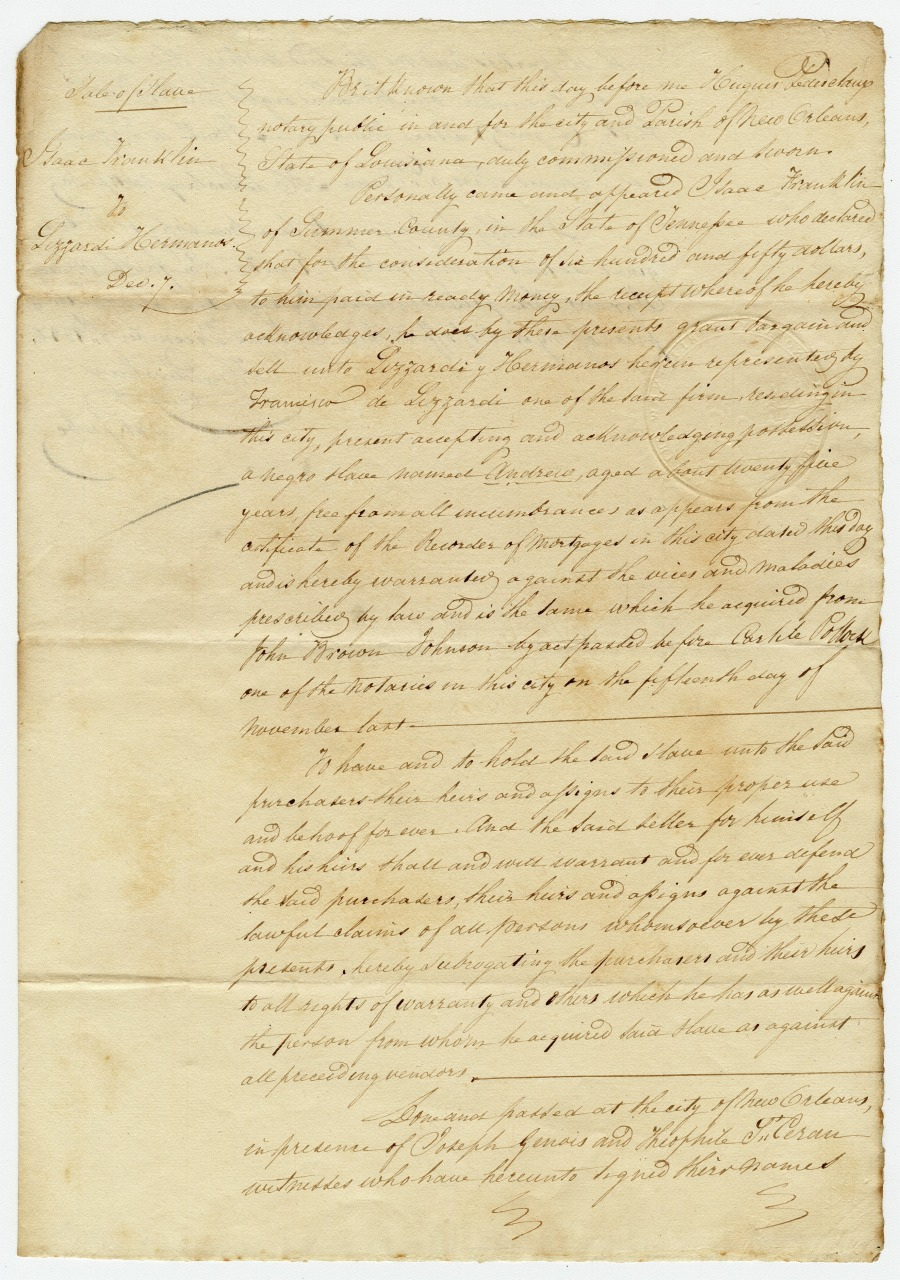 Sale of Slave
Isaac Franklin
to
Lizzardi Hermanos.
Dec. 7.
Be it Known that this day before me Hugues Pedesclaux
notary public in and for the city and Parish of New Orleans,
State of Louisiana, duly commissioned and sworn.
Personally came and appeared Isaac Franklin
of Sumner County, in the State of Tennessee who declared
that for the consideration of six hundred and fifty dollars,
to him paid in ready money, the receipt whereof he hereby
acknowledges, he does by these presents grant bargain and
sell unto Lizzardi y Hermanos herein represented by
Francisco de Lizzardi one of the said firm, residing in
this city, present accepting and acknowledging possession,
a negro slave named Andrew, aged about twenty five
years, free from all incumbrances as appears from the
certificate of the Recorder of Mortgages in this city dated this day
and is hereby warranted against the vices and maladies
prescribed by law and is the same which he acquired from
John Brown Johnson by act passed before Carlile Pollock
one of the notaries in this city on the fifteenth day of
November last
To have and to hold the said slave unto the said
purchasers their heirs and assigns to their proper use
and behoof for ever. And the said seller for himself
and his heirs shall and will warrant and for ever defend
the said purchasers, their heirs and assigns against the
lawful claims of all persons whomsoever by these
presents, hereby subrogating the purchasers and their heirs
to all rights of warranty and others which he has as well against
the person from whom he acquired said slave as against
all preceeding vendors.
Done and passed at the city of New Orleans,
in presence of Joseph Genois and Theophile St. Ceran
witnesses who have hereunto signed their names